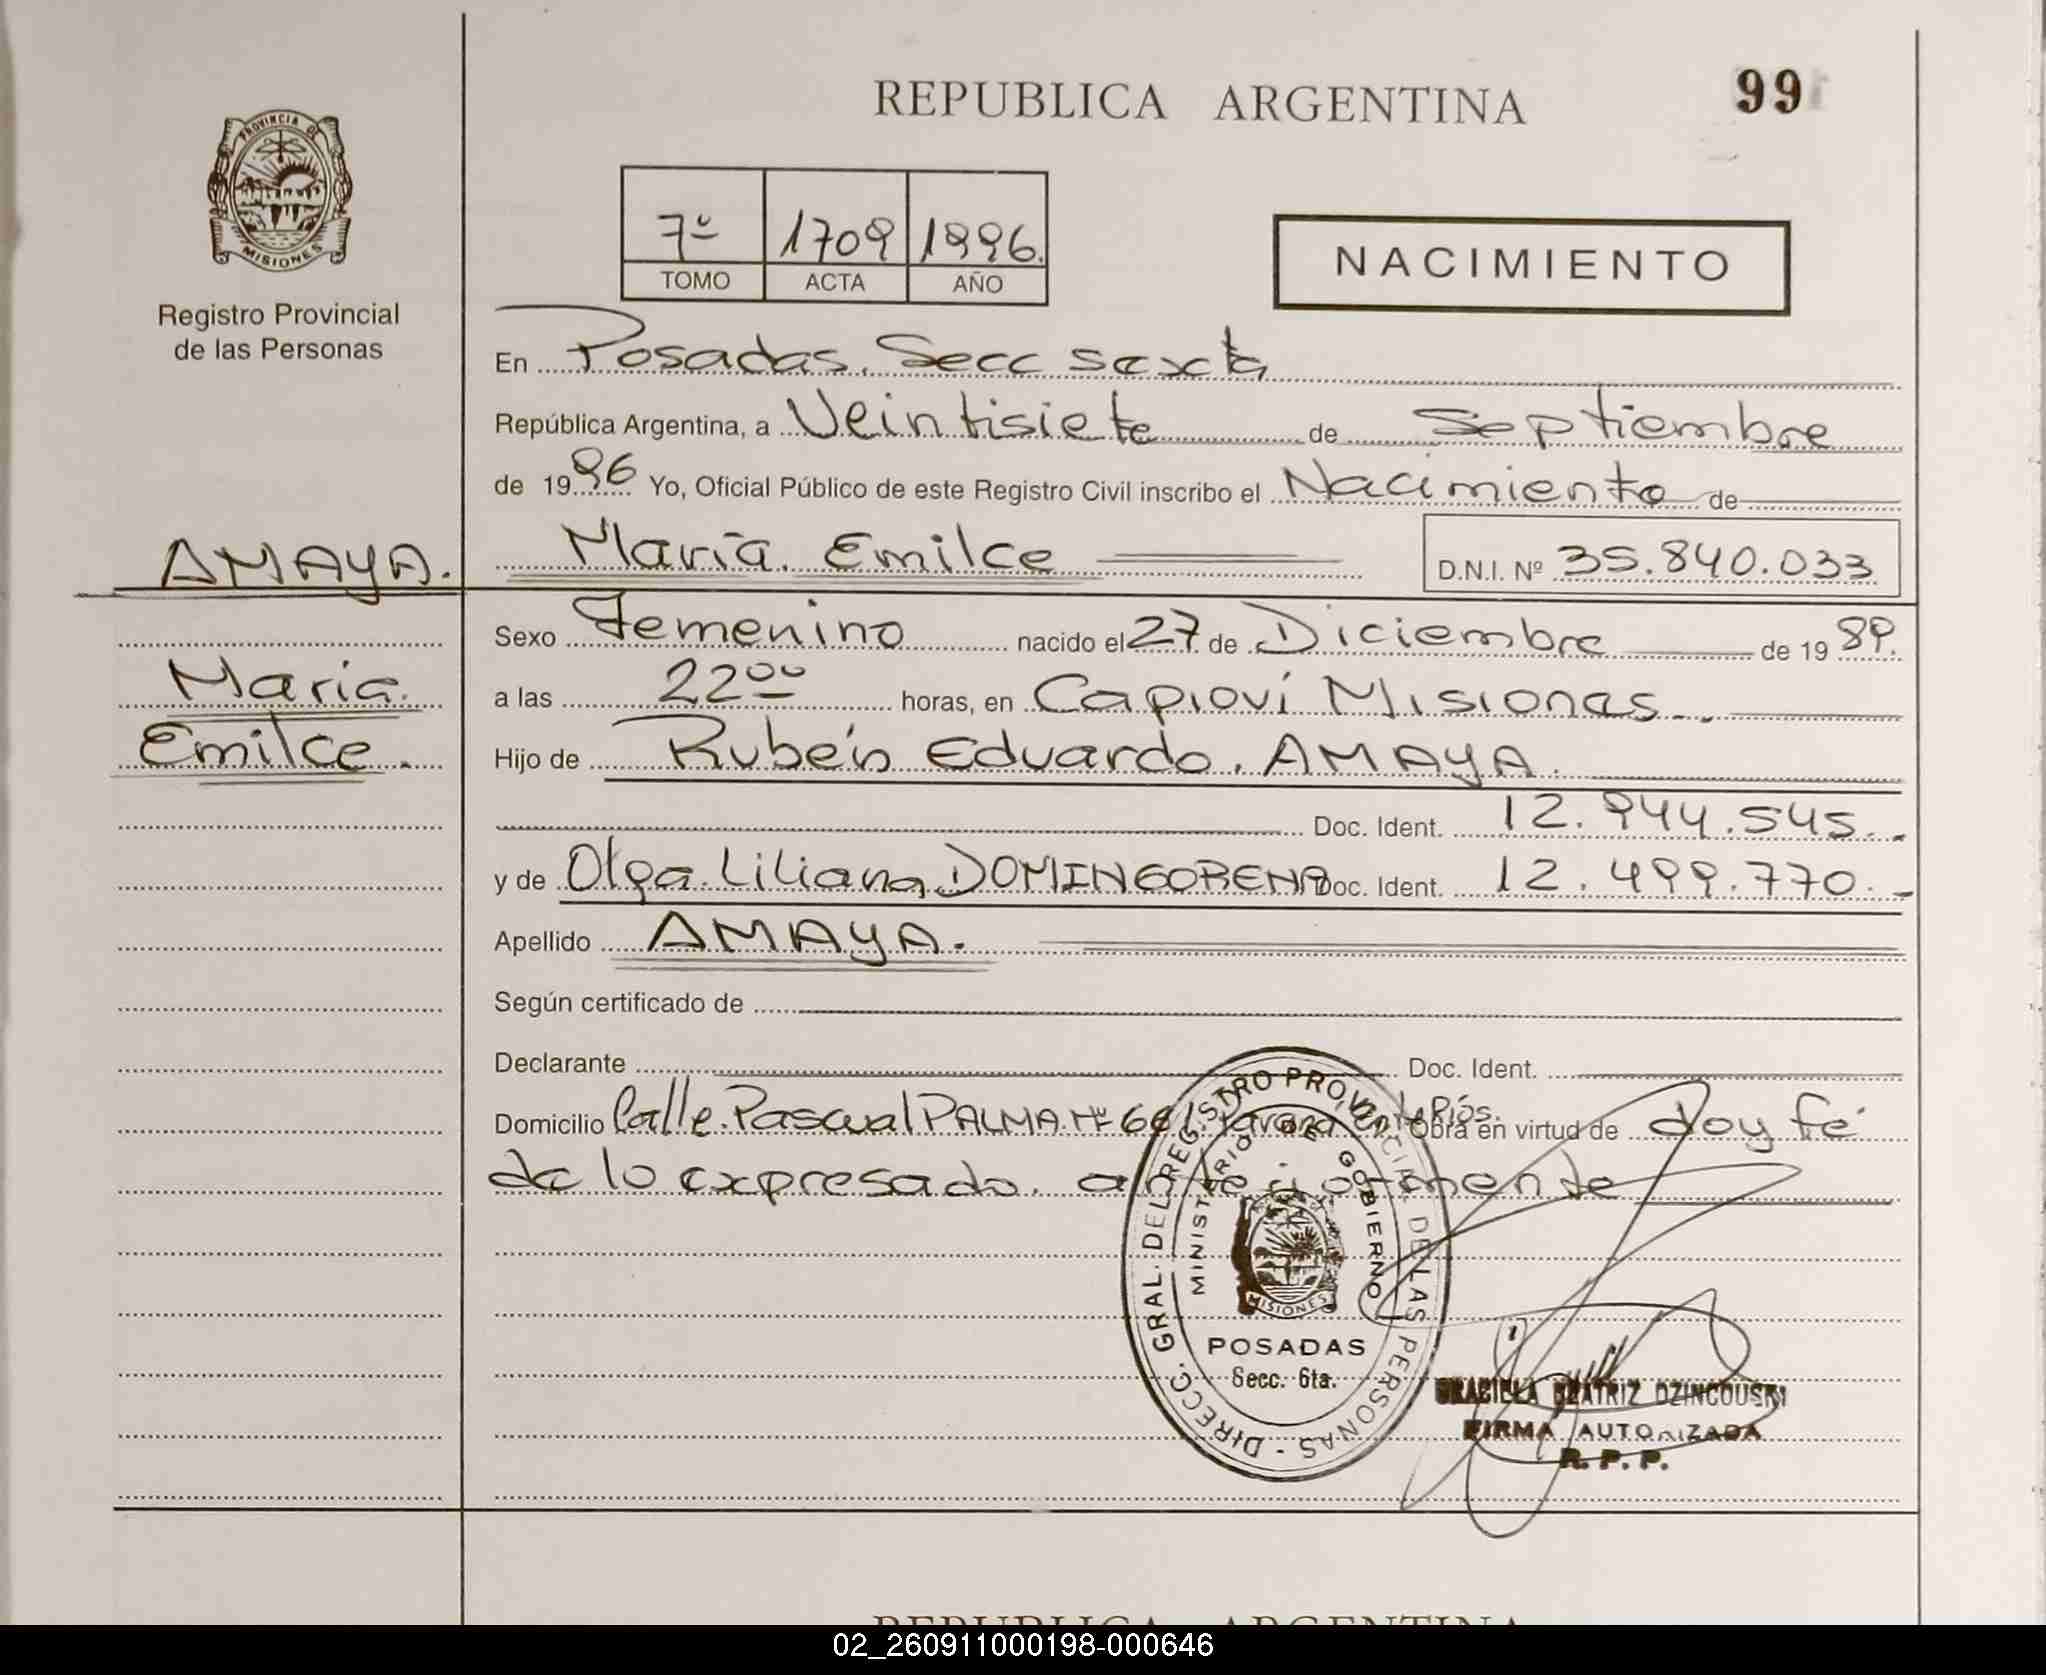 REPUBLICA ARGENTINA
99
PROVINCIA DE
MISIONES
Registro Provincial
de las Personas
7º 1709 1996.
TOMO ACTA AÑO
NACIMIENTO
En Posadas. Secc sexta
República Argentina, a Veintisiete de Septiembre
de 1996 Yo, Oficial Público de este Registro Civil inscribo el Nacimiento de
AMAYA.
María. Emilce D.N.I. Nº 35.840.033
Sexo Femenino nacido el 27 de Diciembre de 1989.
María.
Emilce.
a las 22⁰⁰ horas, en Capioví Misiones.
Hijo de Rubén Eduardo. AMAYA.
Doc. Ident. 12.944.545.-
y de Olga. Liliana, DOMINGORENA Doc. Ident. 12.499.770.-
Apellido AMAYA.
Según certificado de
Declarante Doc. Ident.
Domicilio Calle. Pascual PALMA. Nº Ríos. Obra en virtud de doy fé
de lo expresado. anteriormente
DIRECC. GRAL. DEL REGISTRO PROVINCIAL DE LAS PERSONAS -
MINISTERIO DE GOBIERNO
MISIONES
POSADAS
Secc. 6ta.
GRACIELA BEATRIZ DZINCOUSKI
FIRMA AUTORIZADA
R. P. P.
REPUBLICA ARGENTINA
02_260911000198-000646